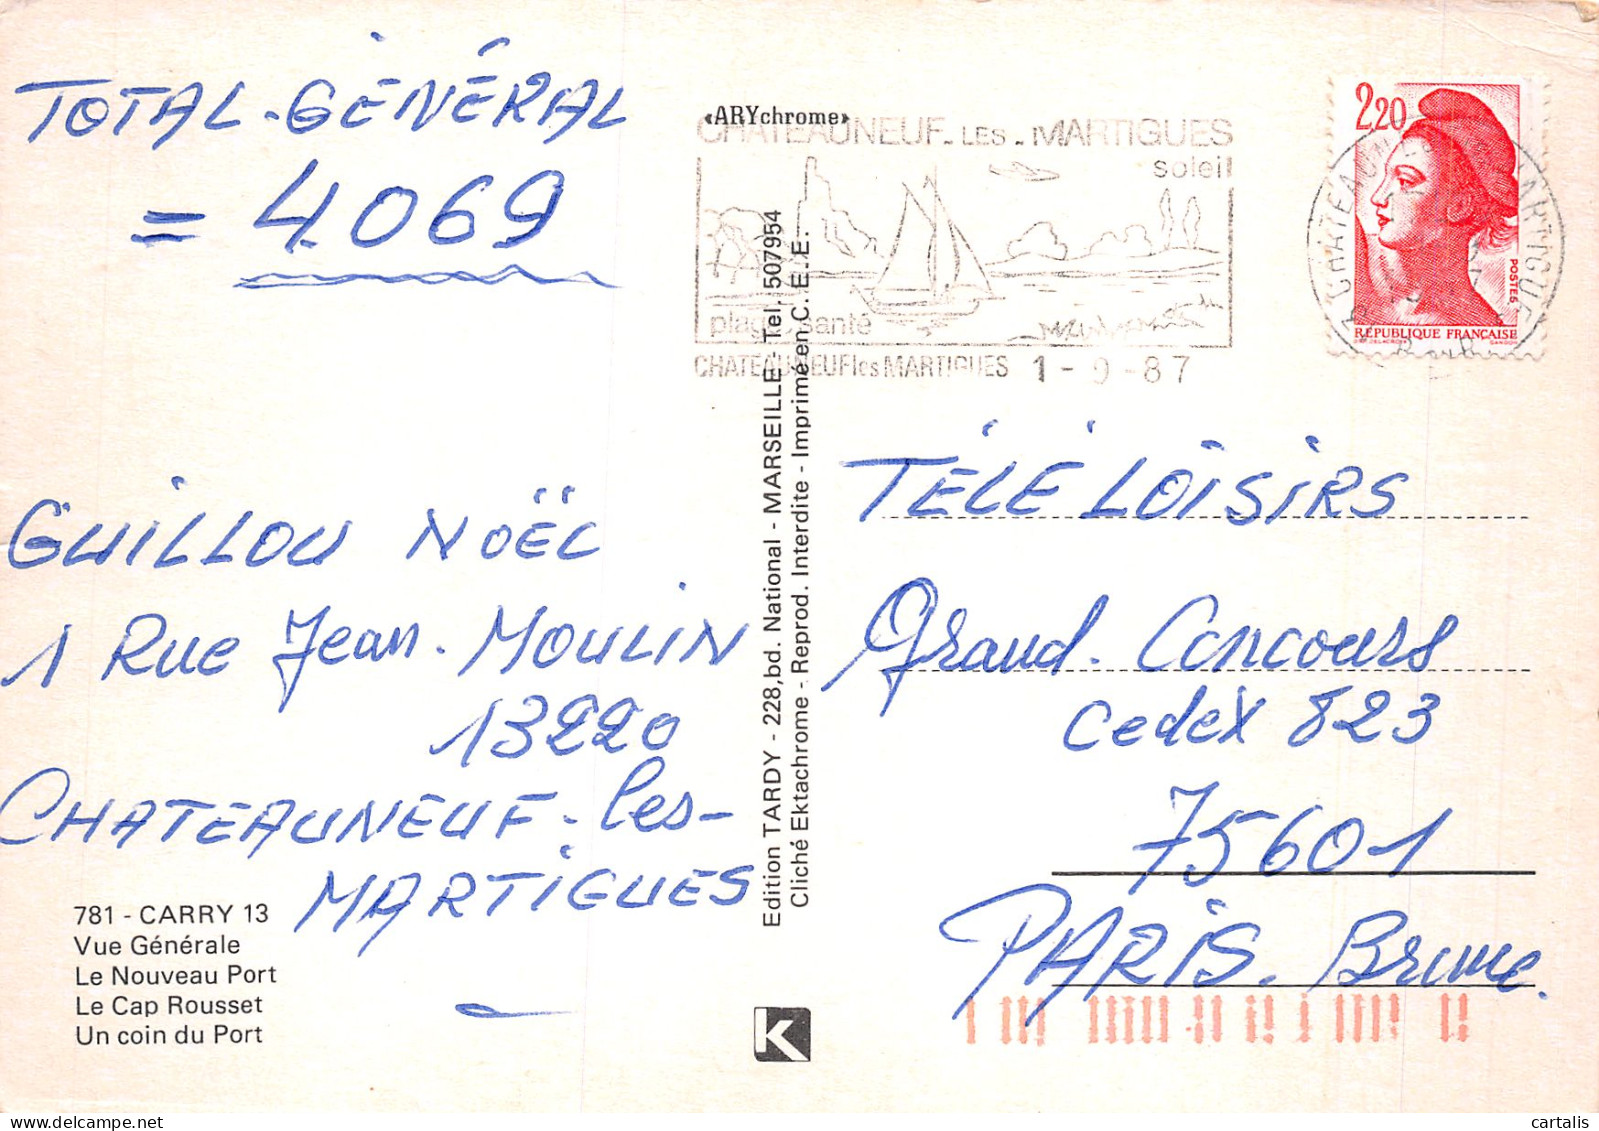 TOTAL-GÉNÉRAL
= 4.069
GUILLOU NOËL
1 Rue Jean-MOULIN
13220
CHATEAUNEUF-les-
MARTIGUES
781 - CARRY 13
Vue Générale
Le Nouveau Port
Le Cap Rousset
Un coin du Port
«ARYchrome»
Edition TARDY - 228, bd. National - MARSEILLE - Tel. 507954
Cliché Ektachrome - Reprod. Interdite - Imprimé en C.E.E.
K
CHATEAUNEUF-LES-MARTIGUES
soleil
plage santé
CHATEAUNEUF les MARTIGUES 1-9-87
2,20
POSTES
RÉPUBLIQUE FRANÇAISE
TÉLÉ LOISIRS
Grand-Concours
Cedex 823
75601
PARIS. Brune.
cartalis